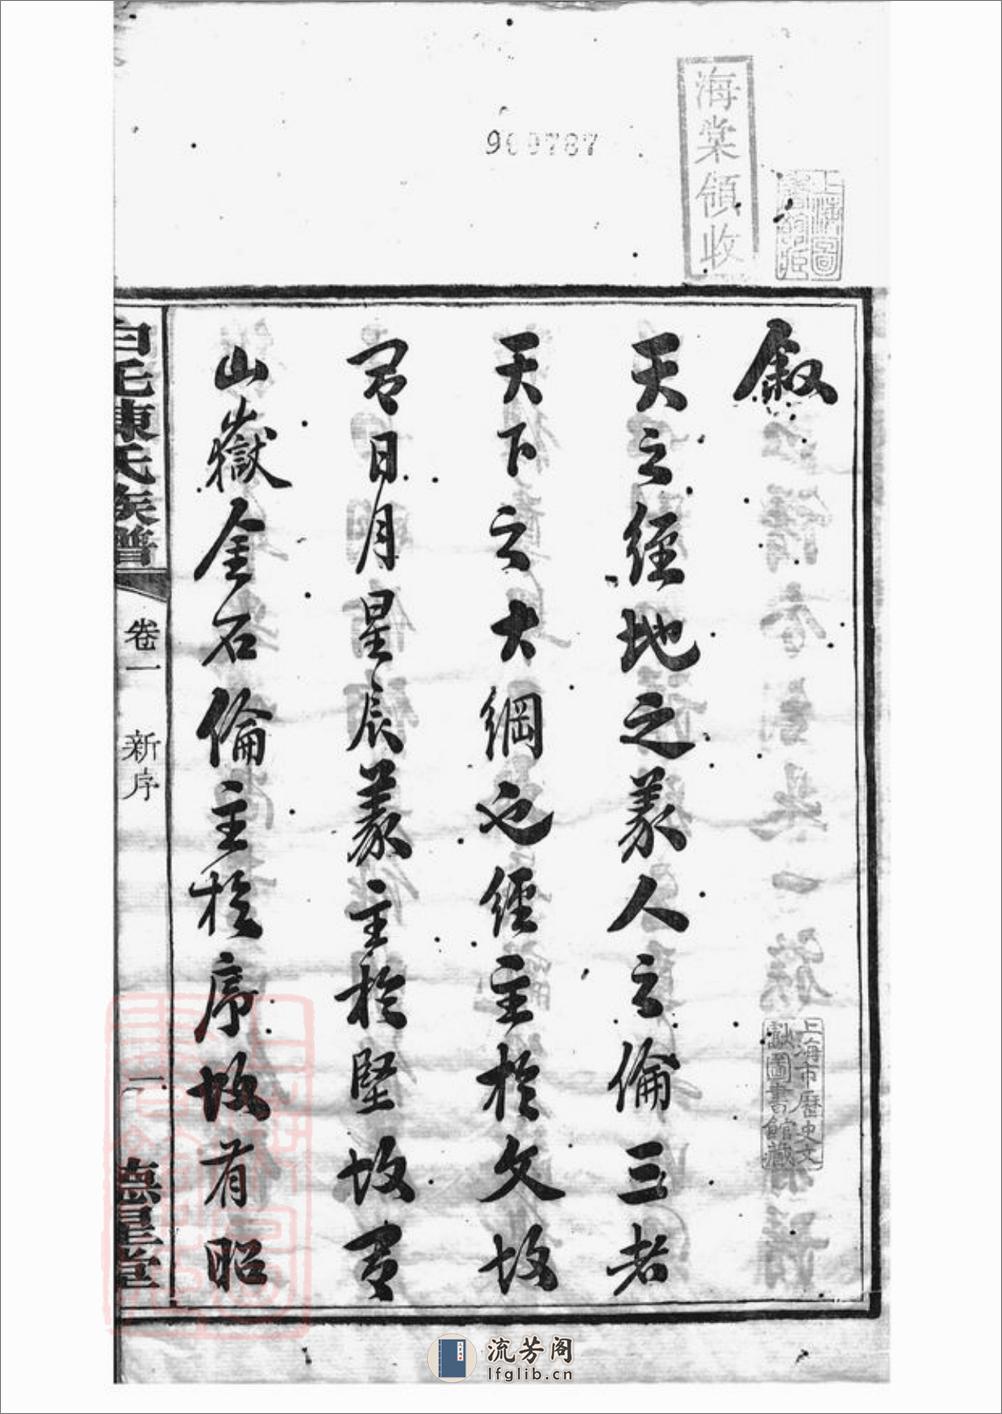 海棠領收
上海圖書館藏
敘
天之經地之義人之倫三者
天下之大綱也經主於文故
有日月星辰義主於堅故有
山嶽金石倫主於序故有昭
陳氏族譜
卷一 新序
一 德星堂
上海市歷史文
獻圖書館藏
流芳阁
lfglib.cn